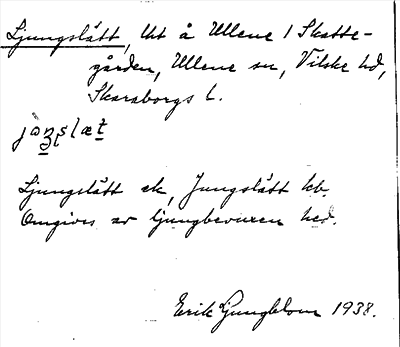 Ljungslätt, lht å Ullene 1 Skatte-
gården, Ullene sn, Vilske hd,
Skaraborgs l.
Ljungslätt ek, Jungslätt kb.
Omgives av ljungbevuxen hed.
Erik Ljungblom 1938.